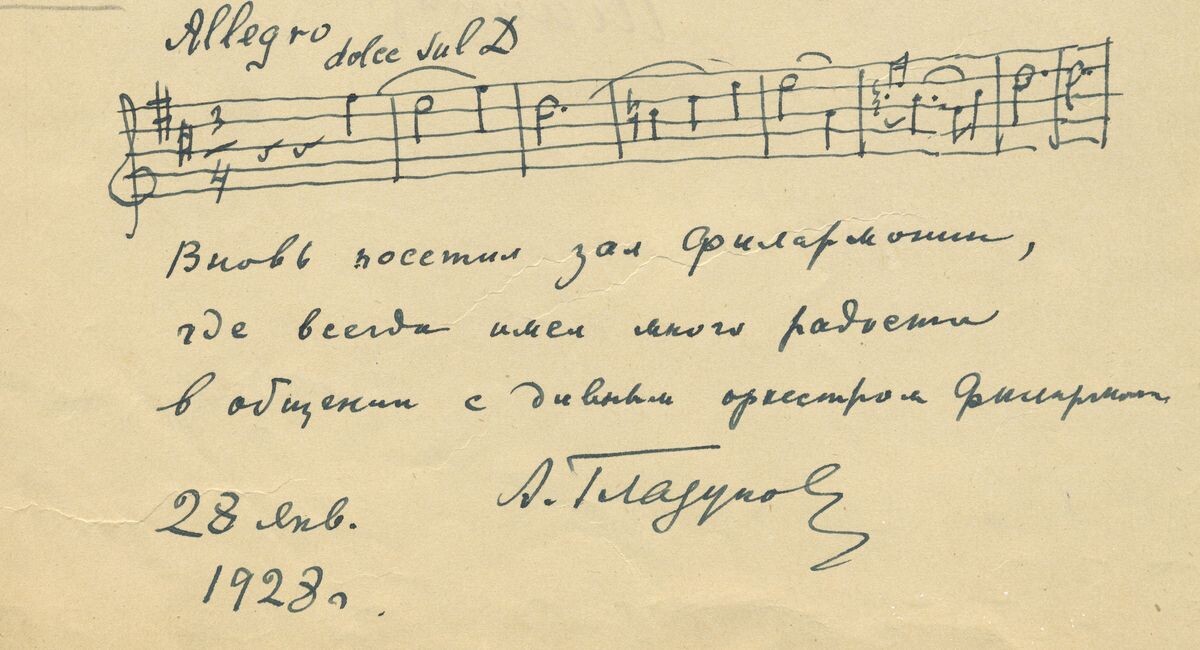 Allegro dolce sul D
3
4
Вновь посетил зал Филармонии,
где всегда имел много радости
в общении с дивным оркестром Филармонии
А. Глазунов
28 янв.
1928 г.